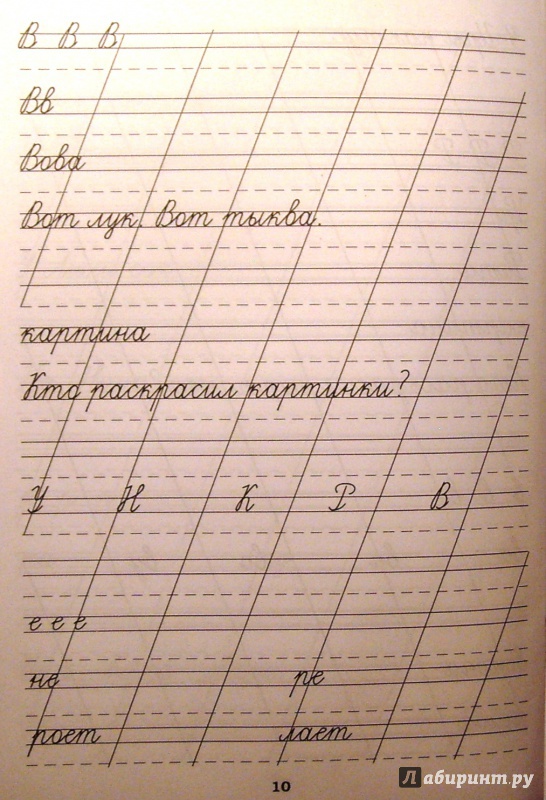 В В В
Вв
Вова
Вот лук. Вот тыква.
картина
Кто раскрасил картинки?
У Н К Р В
е е е
не ре
роет лает
10
Лабиринт.ру